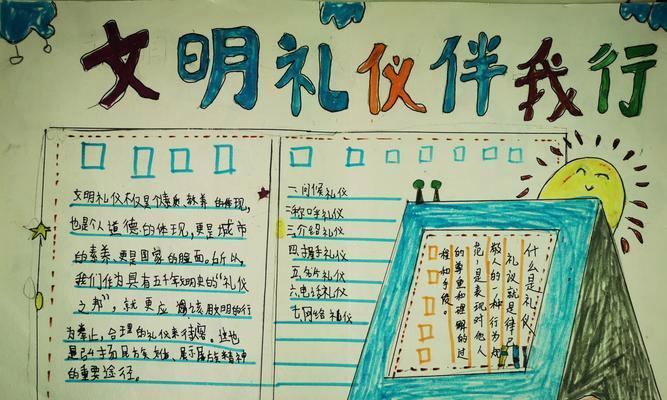 文明礼仪伴我行
文明礼仪不仅是个素质、教养的体现,
也是个人道德的体现,更是城市
的素养、更是国家的脸面。所以,
我们作为具有五千年文明史的“礼仪
之邦”,就更应该用文明的行
为举止,合理的礼仪来待客。这也
是
的重要途径。
一问候礼仪
二称呼礼仪
三介绍礼仪
四握手礼仪
五名片礼仪
六电话礼仪
七网络礼仪
什么是礼仪,
礼仪就是律己
敬人的一种行为规
范,是表现对他人
的尊重和理解的过
程和手段。